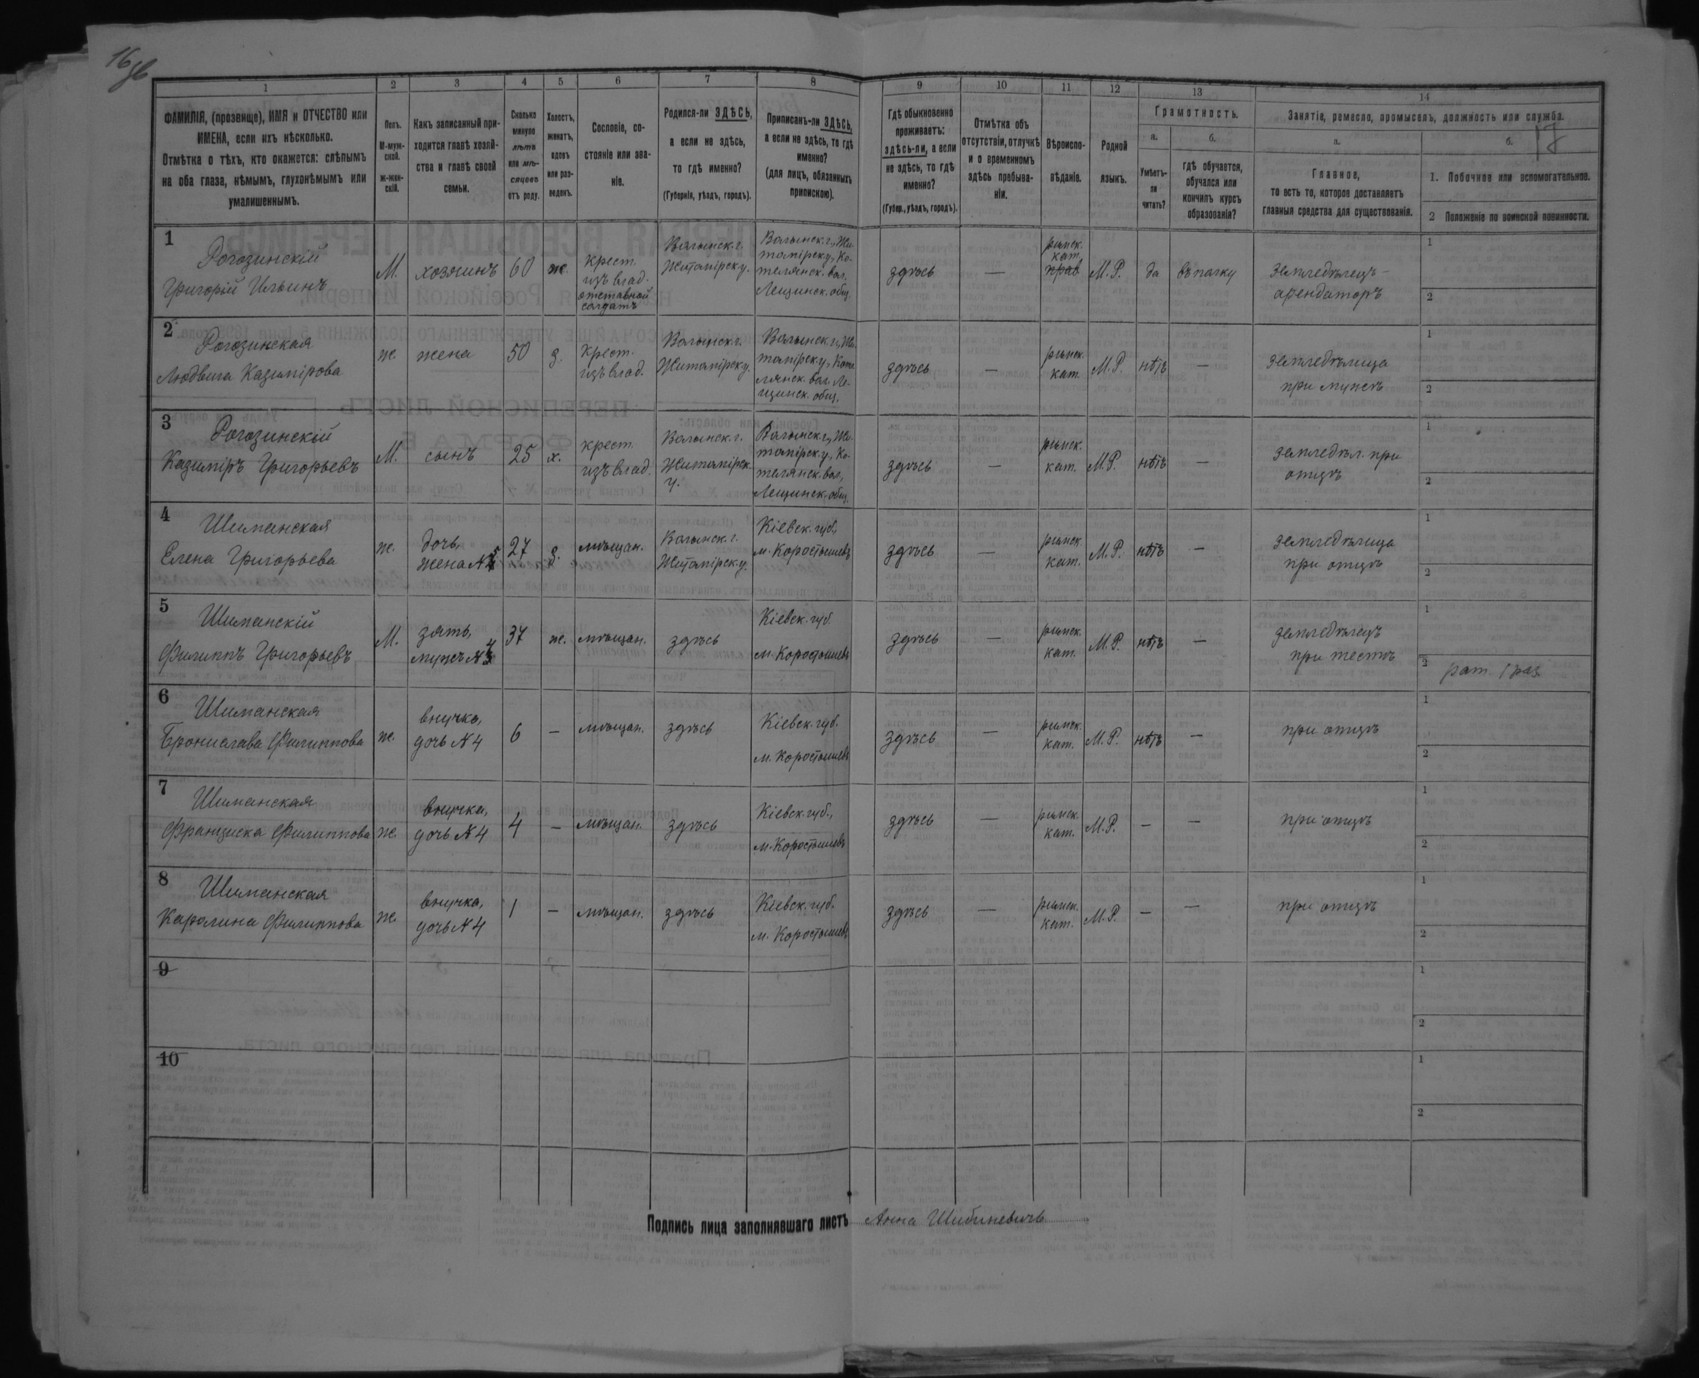 16 об
17
1 2 3 4 5 6 7 8 9 10 11 12 13 14
ФАМИЛІЯ, (прозвище), ИМЯ и ОТЧЕСТВО или
ИМЕНА, если ихъ нѣсколько.
Отмѣтка о тѣхъ, кто окажется: слѣпымъ
на оба глаза, нѣмымъ, глухонѣмымъ или
умалишеннымъ.
Полъ.
М-муж-
ской.
Ж-жен-
скій.
Какъ записанный при-
ходится главѣ хозяй-
ства и главѣ своей
семьи.
Сколько
минуло
лѣтъ
или мѣ-
сяцевъ
отъ роду.
Холостъ,
женатъ,
вдовъ
или раз-
веденъ.
Сословіе, со-
стояніе или зва-
ніе.
Родился-ли ЗДѢСЬ,
а если не здѣсь,
то гдѣ именно?
(Губернія, уѣздъ, городъ).
Приписанъ-ли ЗДѢСЬ,
а если не здѣсь, то гдѣ
именно?
(для лицъ, обязанныхъ
припискою).
Гдѣ обыкновенно
проживаетъ:
здѣсь-ли, а если
не здѣсь, то гдѣ
именно?
(Губер., уѣздъ, городъ).
Отмѣтка объ
отсутствіи, отлучкѣ
и о временномъ
здѣсь пребыва-
ніи.
Вѣроиспо-
вѣданіе.
Родной
языкъ.
Грамотность.
а.
Умѣетъ-
ли
читать?
б.
гдѣ обучается,
обучался или
кончилъ курсъ
образованія?
Занятіе, ремесло, промыселъ, должность или служба.
а.
Главное,
то есть то, которое доставляетъ
главныя средства для существованія.
б.
1. Побочное или вспомогательное.
2 Положеніе по воинской повинности.
1
Рогозинскій
Григорій Ильинъ
М.
хозяинъ
60
ж.
крест.
изъ влад.
отставной
солдатъ
Волынск. г.
Житомірск у.
Волынск. г., Жи-
томірск у., Ко-
телянск. вол.,
Лещинск. общ.
здѣсь
—
римск.
кат.
прав
М.Р.
да
въ полку
земледѣлецъ-
арендаторъ
1
2
2
Рогозинская
Людвига Казимірова
ж.
жена
50
з.
крест.
изъ влад.
Волынск г.
Житомірск у.
Волынск г., Жи-
томірск у., Коте-
лянск. вол. Ле-
щинск. общ.
здѣсь
—
римск.
кат.
М.Р.
нѣтъ
—
земледѣлица
при мужѣ
1
2
3
Рогозинскій
Казиміръ Григорьевъ
М.
сынъ
25
х.
крест.
изъ влад.
Волынск. г.
Житомірск.
у.
Волынск г., Жи-
томірск у., Ко-
телянск. вол.,
Лещинск. общ.
здѣсь
—
римск.
кат.
М.Р.
нѣтъ
—
земледѣл. при
отцѣ
1
2
4
Шиманская
Елена Григорьева
ж.
дочь,
жена № 5
27
з.
мѣщан.
Волынск. г.
Житомірск у.
Кіевск. губ.
м. Коростышевъ
здѣсь
—
римск.
кат.
М.Р.
нѣтъ
—
земледѣлица
при отцѣ
1
2
5
Шиманскій
Филиппъ Григорьевъ
М.
зять,
мужъ № 4
37
ж.
мѣщан.
здѣсь
Кіевск. губ.
м. Коростышевъ
здѣсь
—
римск.
кат.
М.Р.
нѣтъ
—
земледѣлецъ
при тестѣ
1
2 рат. 1 раз.
6
Шиманская
Бронислава Филиппова
ж.
внучка,
дочь № 4
6
—
мѣщан.
здѣсь
Кіевск. губ.
м. Коростышевъ
здѣсь
—
римск.
кат.
М.Р.
нѣтъ
—
при отцѣ
1
2
7
Шиманская
Франциска Филиппова
ж.
внучка,
дочь № 4
4
—
мѣщан.
здѣсь
Кіевск. губ.,
м. Коростышевъ
здѣсь
—
римск.
кат.
М.Р.
—
—
при отцѣ
1
2
8
Шиманская
Каролина Филиппова
ж.
внучка,
дочь № 4
1
—
мѣщан.
здѣсь
Кіевск. губ.
м. Коростышевъ
здѣсь
—
римск.
кат.
М.Р.
—
—
при отцѣ
1
2
9
1
2
10
1
2
Подпись лица заполнявшаго листъ Анна Шибиневичъ